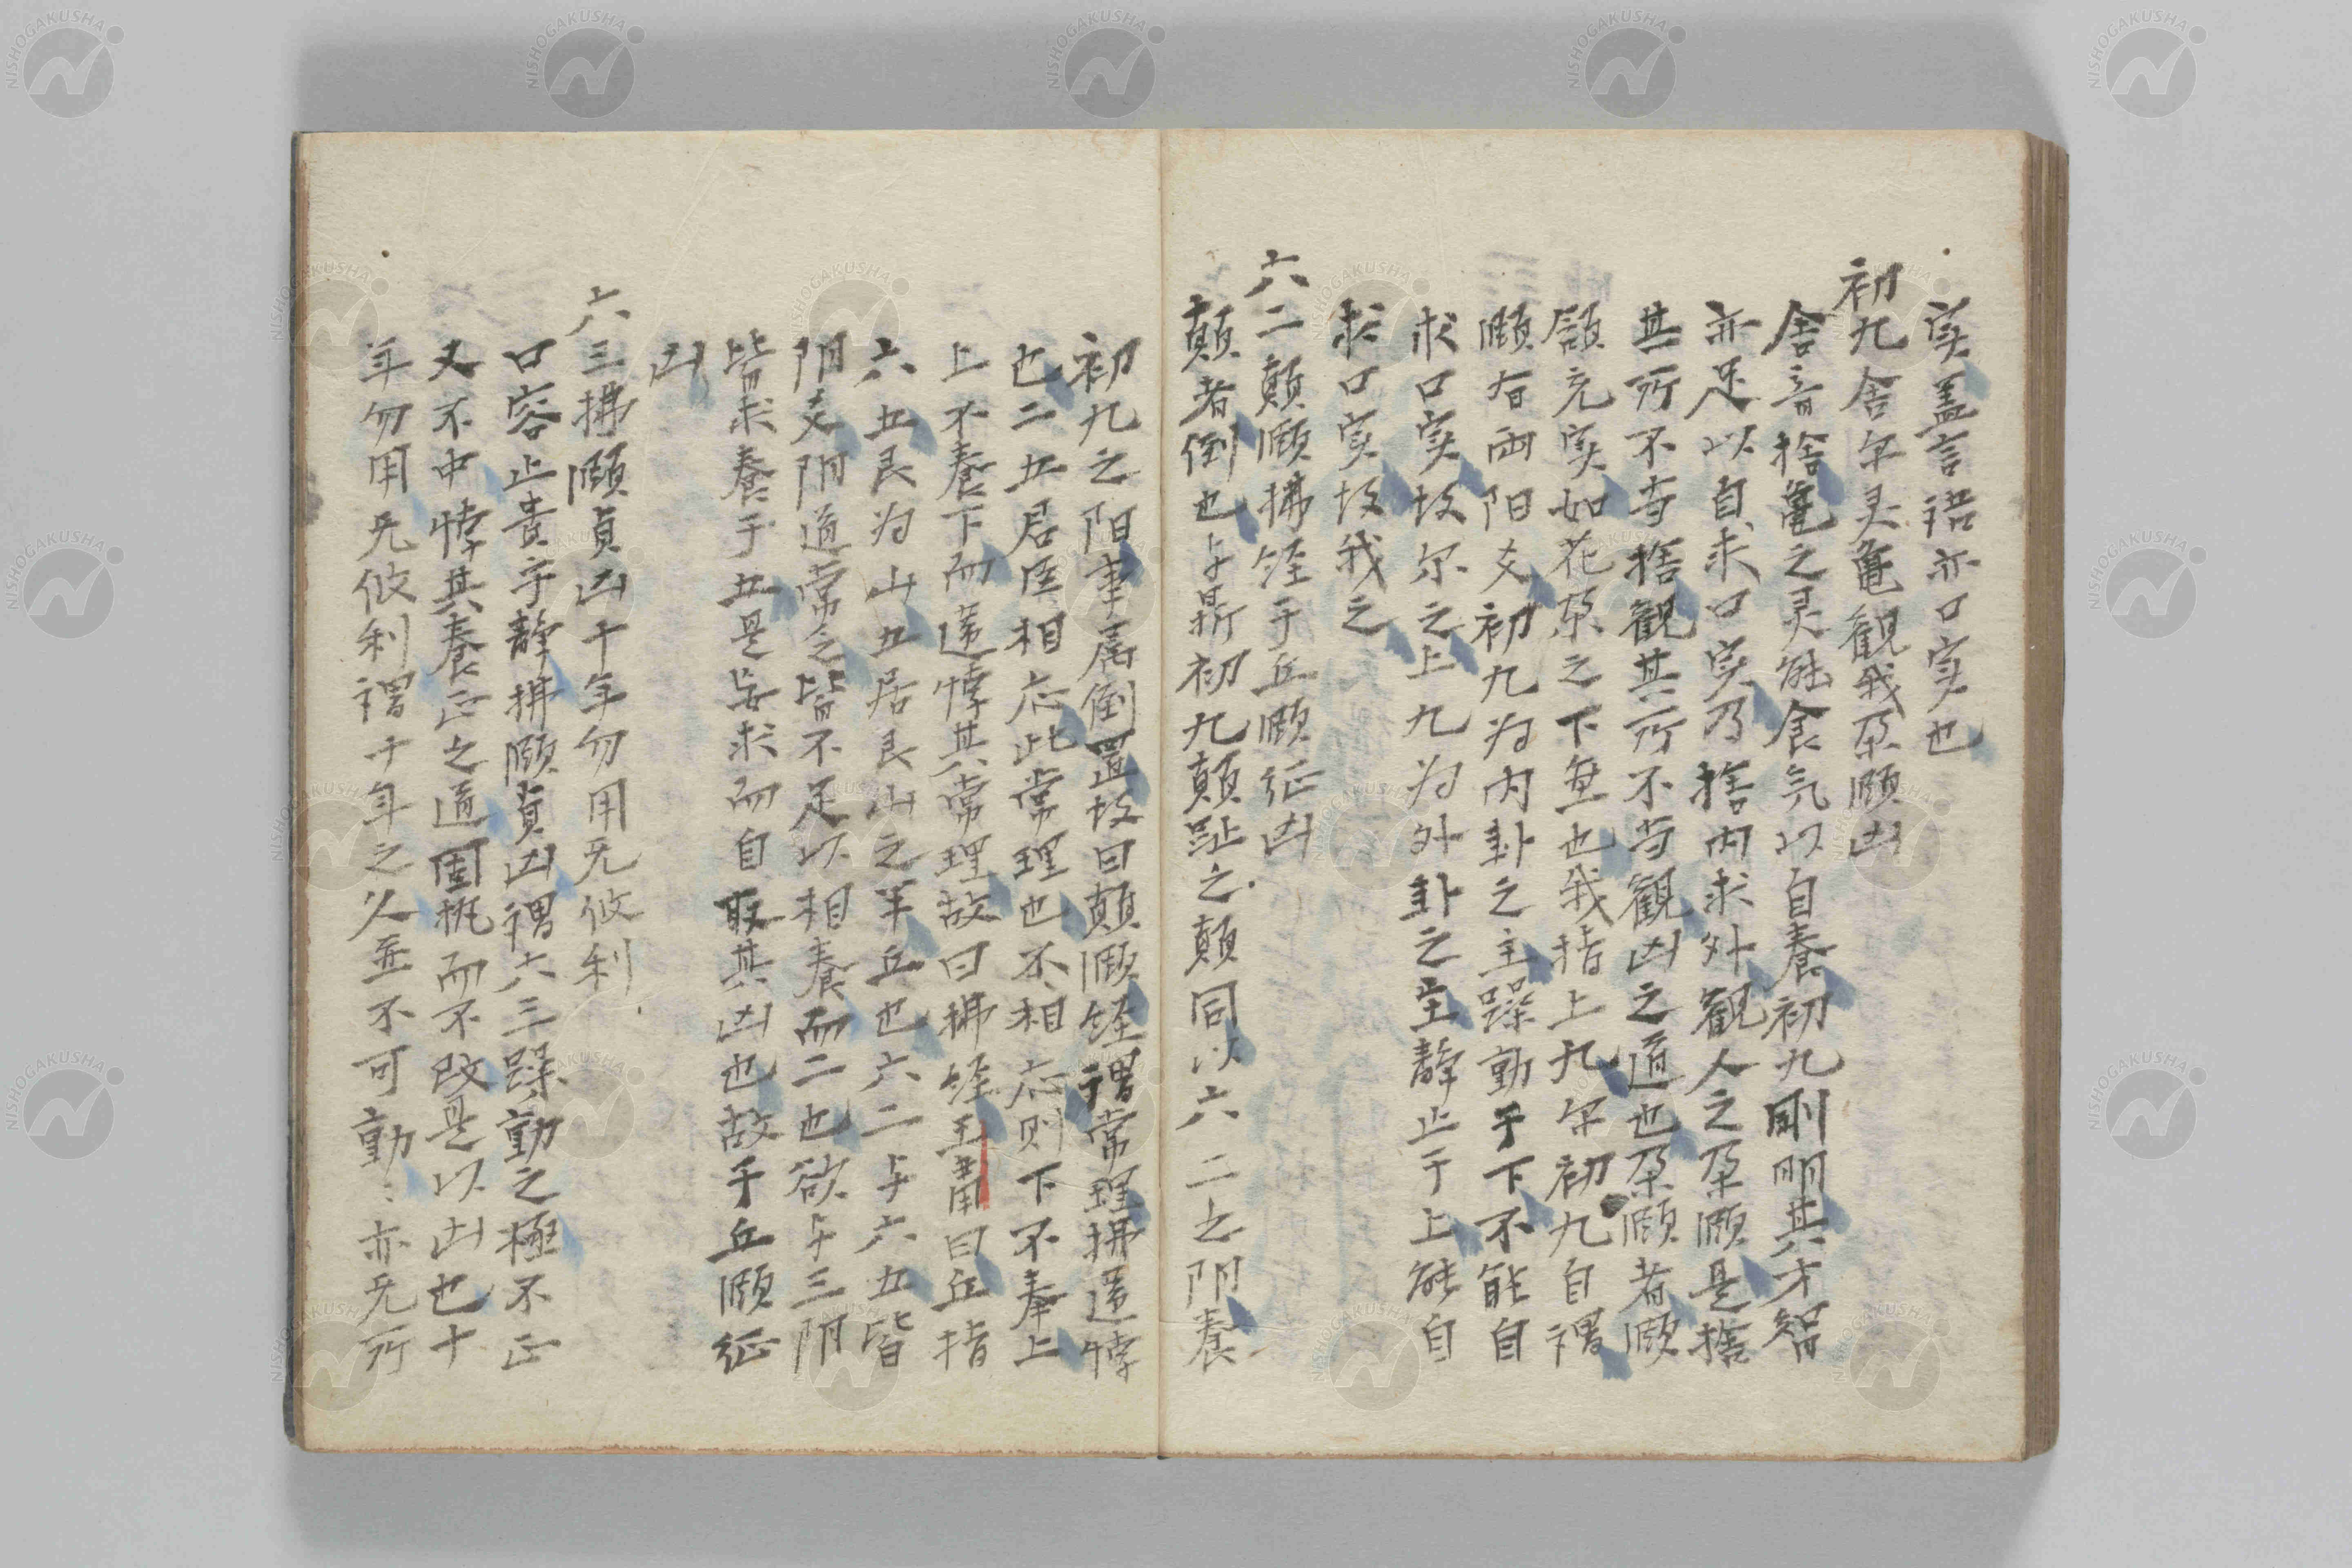 实盖言語亦口实也
初九舍尔灵亀観我朶頤凶
舍音捨亀之灵能食气以自養初九剛明其才智
亦足以自求口实乃捨内求外観人之朶頤是捨
其所不当捨観其所不当観凶之道也朶頤者頤
頷充实如花朶之下垂也我指上九尔初九自謂
頤有両阳爻初九为内卦之主躁動于下不能自
求口实故尔之上九为外卦之主静止于上能自
求口实故我之
六二顛頤拂経于丘頤征凶
顛者倒也与鼎初九顛趾之顛同以六二之阴養
初九之阳事属倒置故曰顛頤経謂常理拂違悖
也二五居位相応此常理也不相応则下不奉上
上不養下而違悖其常理故曰拂経王粛曰丘指
六五艮为山五居艮山之半丘也六二与六五皆
阴爻阴道常之皆不足以相養而二也欲与三阴
皆求養于五是妄求而自取其凶也故于丘頤征
凶
六三拂頤貞凶十年勿用无攸利
口容止貴乎静拂頤貞凶謂六三躁動之極不正
又不中悖其養正之道固執而不改是以凶也十
年勿用无攸利謂十年之久並不可動〻亦无所
NISHOGAKUSHA